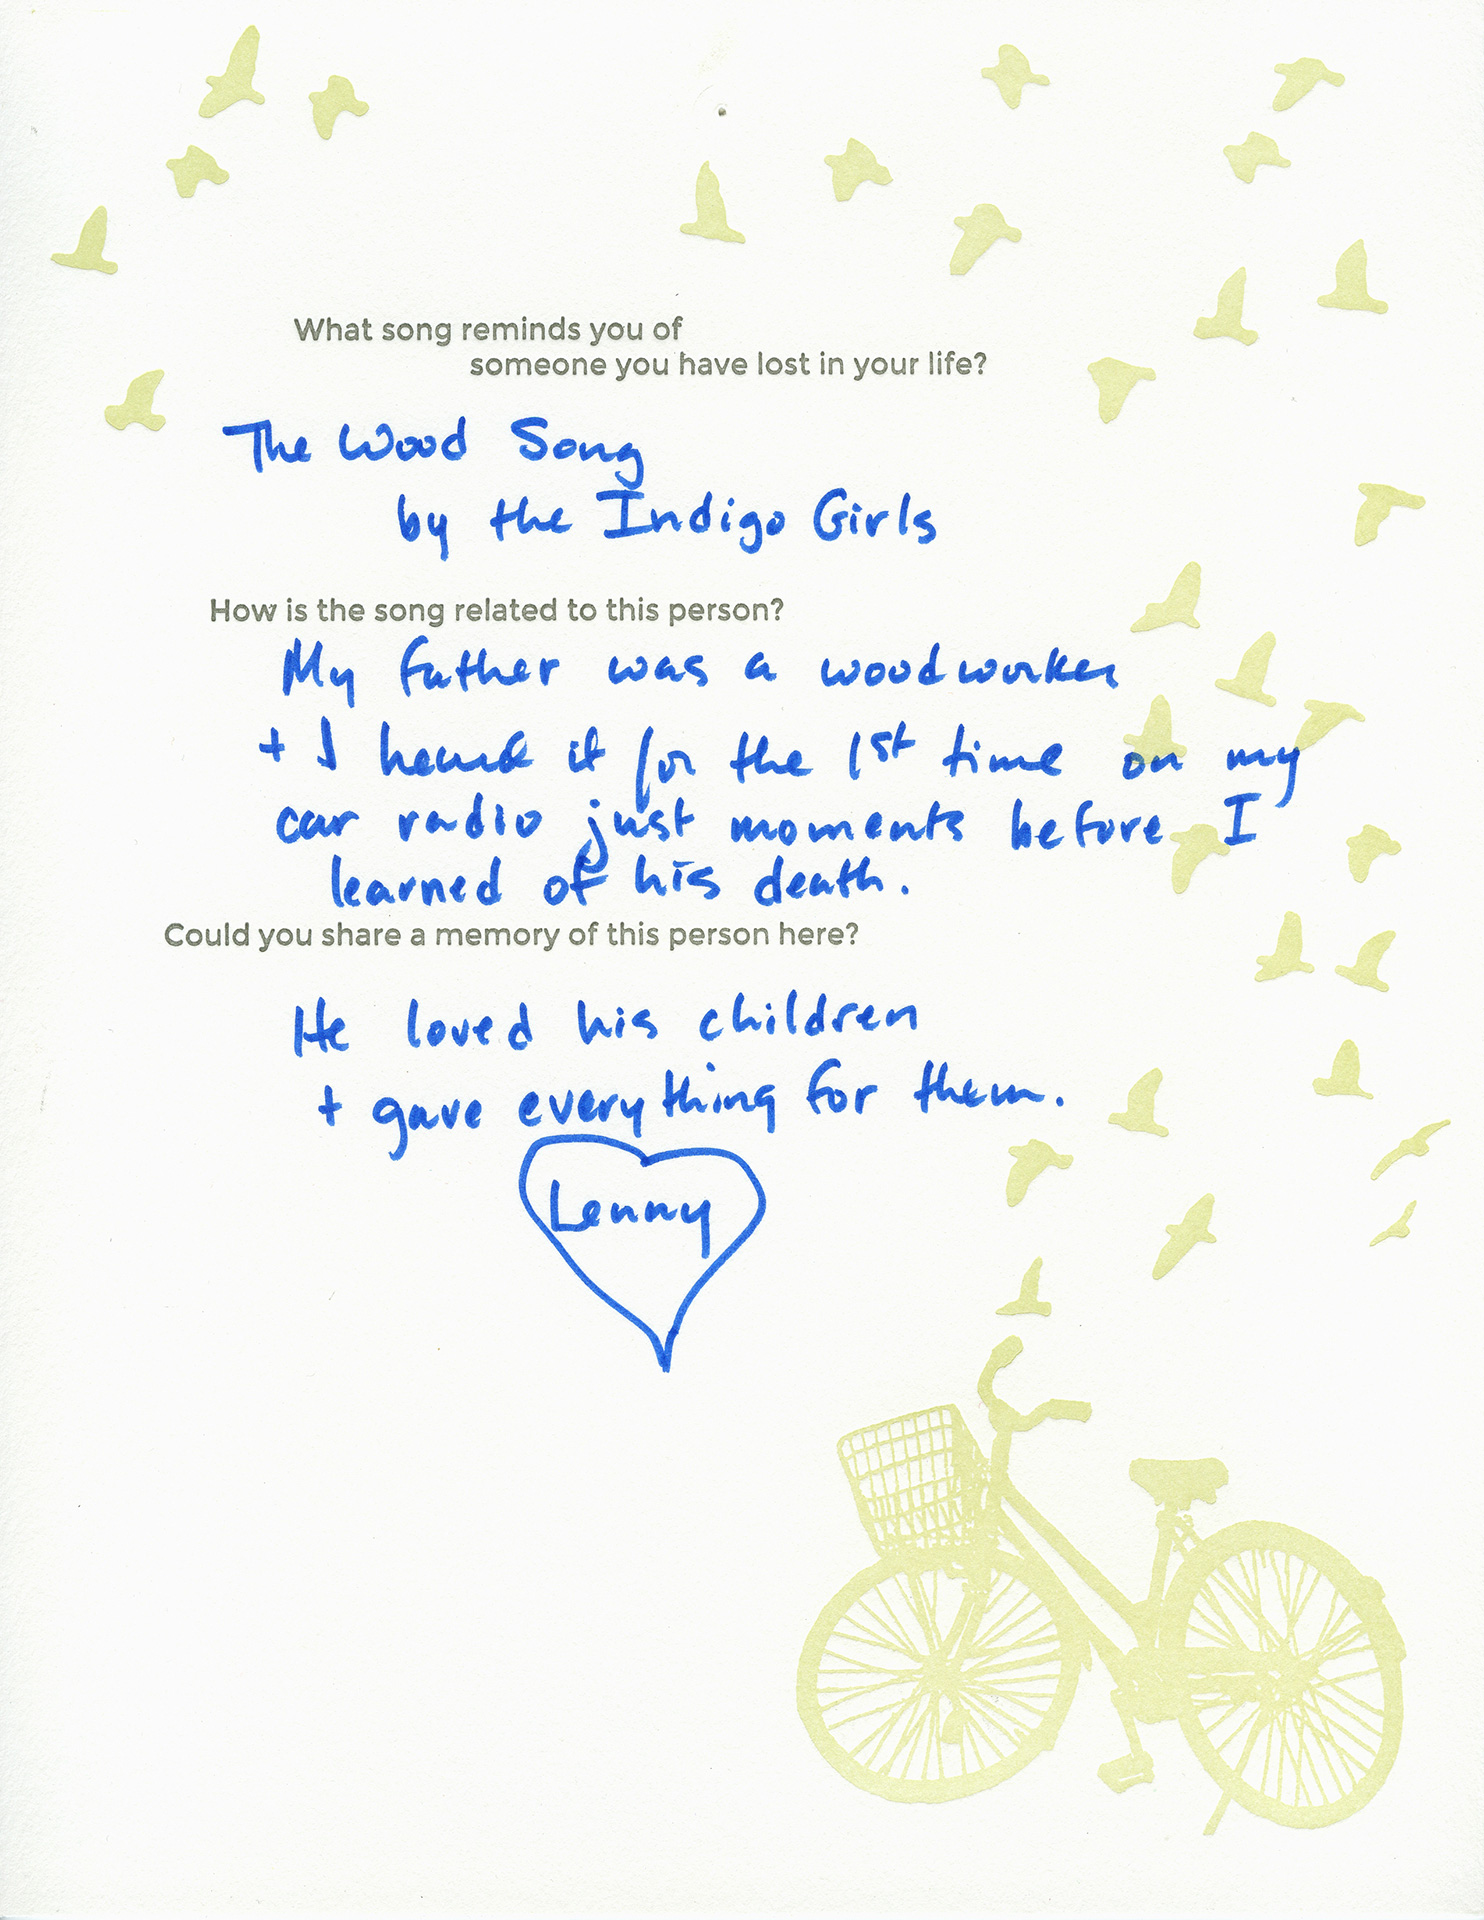 What song reminds you of
someone you have lost in your life?
The Wood Song
by the Indigo Girls
How is the song related to this person?
My father was a woodworker
+ I heard it for the 1st time on my
car radio just moments before I
learned of his death.
Could you share a memory of this person here?
He loved his children
+ gave everything for them.
Lenny